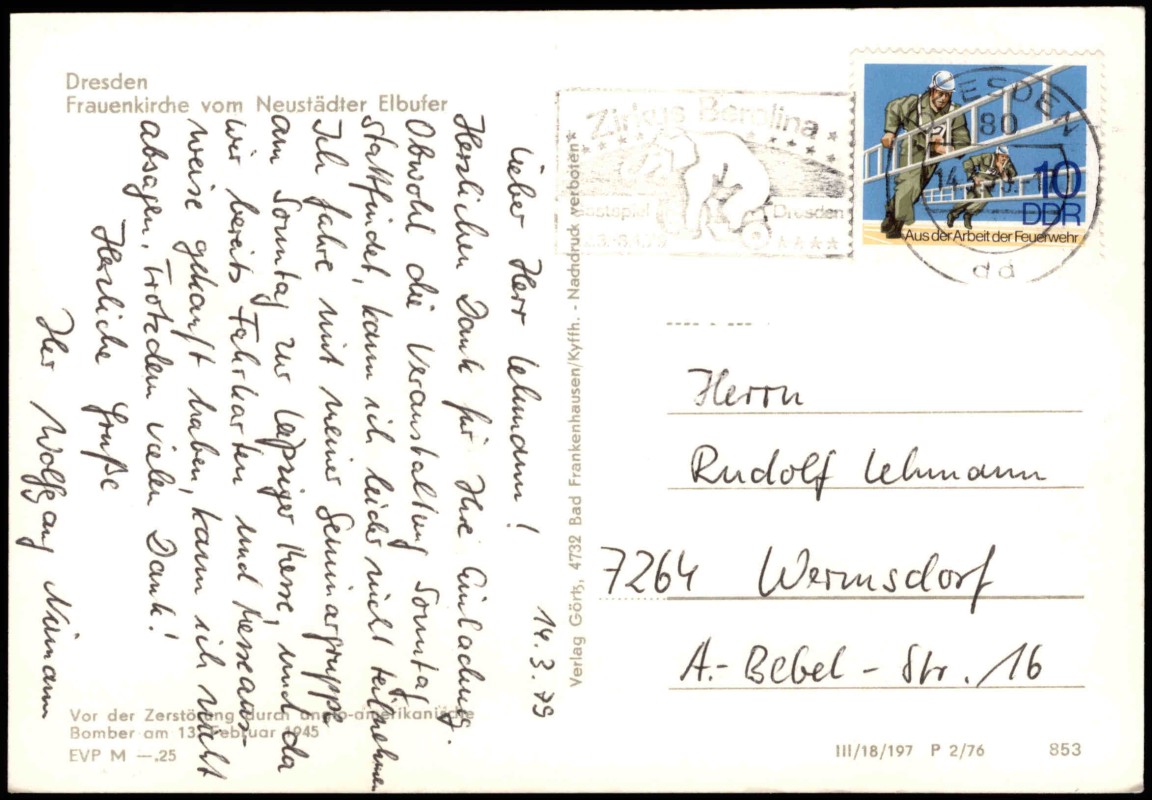 Dresden
Frauenkirche vom Neustädter Elbufer
14.3.79
Lieber Herr Lehmann!
Herzlichen Dank für Ihre Einladung.
Obwohl die Veranstaltung Sonntag
stattfindet, kann ich leider nicht teilnehmen
Ich fahre mit meiner Seminargruppe
am Sonntag zur Leipziger Messe, und da
wir bereits Fahrkarten und Messeaus-
weise gekauft haben, kann ich nicht
absagen. Trotzdem vielen Dank!
Herzliche Grüße
Ihr Wolfgang
Vor der Zerstörung durch anglo-amerikanische
Bomber am 13. Februar 1945
EVP M —,25
Verlag Görtz, 4732 Bad Frankenhausen/Kyffh. - Nachdruck verboten
Zirkus Berolina
Gastspiel Dresden
DRESDEN
80
dd
10
DDR
Aus der Arbeit der Feuerwehr
Herrn
Rudolf Lehmann
7264 Wermsdorf
A.-Bebel-Str. 16
III/18/197 P 2/76 853